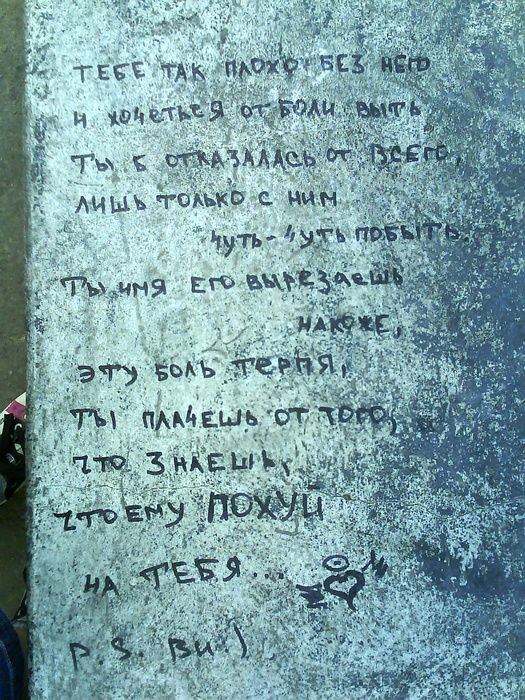 ТЕБЕ ТАК ПЛОХО БЕЗ НЕГО
И ХОЧЕТЬСЯ ОТ БОЛИ ВЫТЬ
ТЫ Б ОТКАЗАЛАСЬ ОТ ВСЕГО,
ЛИШЬ ТОЛЬКО С НИМ
ЧУТЬ-ЧУТЬ ПОБЫТЬ.
ТЫ ИМЯ ЕГО ВЫРЕЗАЕШЬ
НАКОЖЕ,
ЭТУ БОЛЬ ТЕРПЯ,
ТЫ ПЛАЧЕШЬ ОТ ТОГО,
ЧТО ЗНАЕШЬ,
ЧТО ЕМУ ПОХУЙ
НА ТЕБЯ...
P.S. Ви:)